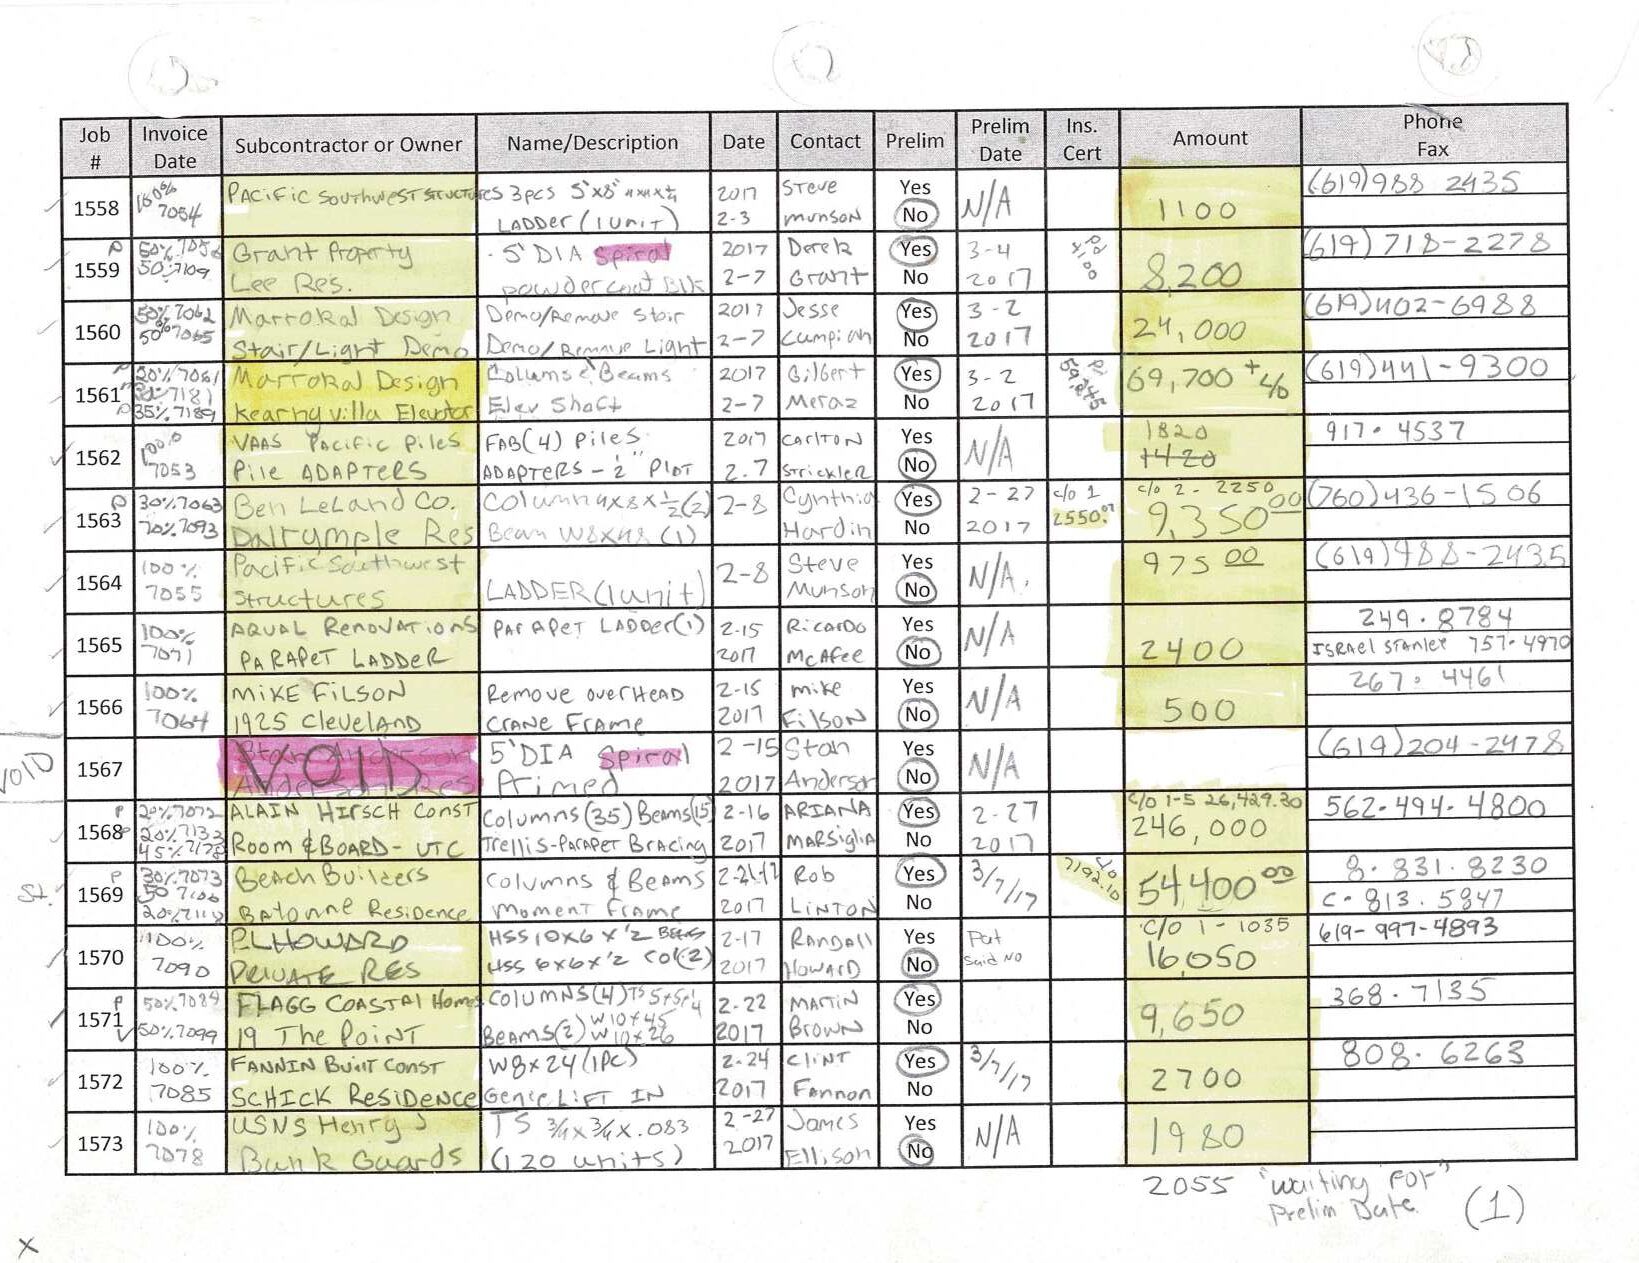 Job # Invoice Date Subcontractor or Owner Name/Description Date Contact Prelim Prelim Date Ins. Cert Amount Phone Fax
1558 100% 7054 PACIFIC SOUTHWEST STRUCTURES 3 PCS 5"x8" LADDER (1 UNIT) 2017 2-3 STEVE MUNSON Yes No N/A 1100 (619) 988 2435
P 1559 50% 7052 50% 7109 Grant Property Lee Res. 5' DIA Spiral powdercoat Blk 2017 2-7 Derek Grant Yes No 3-4 2017 8,200 (619) 718-2278
1560 50% 7062 50% 7065 Marrokal Design Stair/Light Demo Demo/Remove Stair Demo/Remove Light 2017 2-7 Jesse Campian Yes No 3-2 2017 24,000 (619) 402-6988
P 1561 20% 7061 7181 P 35% 7189 Marrokal Design Kearny Villa Elevator Columns & Beams Elev Shaft 2017 2-7 Gilbert Meraz Yes No 3-2 2017 69,700 + c/o (619) 441-9300
1562 100% 7053 VAAS Pacific Piles Pile ADAPTERS FAB (4) Piles ADAPTERS - ½" PLOT 2017 2-7 CARLTON STRICKLER Yes No N/A 1820 1420 917-4537
P 1563 30% 7063 70% 7093 Ben Leland Co. Dalrymple Res Column 4x8x½ (2) Beam W8x48 (1) 2-8 Cynthia Hardin Yes No 2-27 2017 c/o 1 2550.00 c/o 2 - 2250 9,350.00 (760) 436-1506
1564 100% 7055 Pacific Southwest Structures LADDER (1 unit) 2-8 Steve Munson Yes No N/A. 975 00 (619) 988-2435
1565 100% 7071 AQUAL RENOVATIONS PARAPET LADDER PARAPET LADDER (1) 2-15 2017 RICARDO MCAFEE Yes No N/A 2400 249-8784 ISRAEL STANLEY 757-4970
1566 100% 7064 MIKE FILSON 1925 Cleveland Remove overHEAD CRANE FRAME 2-15 2017 Mike Filson Yes No N/A 500 267-4461
VOID 1567 VOID 5' DIA Spiral 2-15 2017 Stan Anderson Yes No N/A (619) 204-2478
P 1568 P 20% 7072 20% 7133 45% 7178 ALAIN HIRSCH CONST ROOM & BOARD - UTC Columns (35) Beams (15) Trellis-Parapet Bracing 2-16 2017 ARIANA MARSIGLIA Yes No 2-27 2017 C/O 1-5 26,429.30 246,000 562-494-4800
St. P 1569 30% 7073 50 20% BEACH BUILDERS Batonne Residence Columns & Beams Moment Frame 2017 Rob LINTON Yes No 3/7/17 c/o 7192.10 54,400 00 8-831-8230 C-813-5847
1570 100% 7090 R.L. HOWARD PRIVATE RES HSS 10x6x½ HSS 6x6x½ COL (2) 2-17 2017 RANDALL HOWARD Yes No Pat said NO C/O 1 - 1035 16,050 619-997-4893
P 1571 50% 7089 50% 7099 FLAGG COASTAL Homes 19 The Point COLUMNS (4) BEAMS (2) W10x45 W10x26 2-22 2017 MARTIN BROWN Yes No 9,650 368-7135
1572 100% 7085 FANNIN BUILT CONST SCHICK Residence W8x24 (1PC) Genie LIFT IN 2-24 2017 CLINT Fannon Yes No 3/7/17 2700 808-6263
1573 100% 7078 USNS Henry J Bunk Guards TS ¾x¾x.083 (120 units) 2-27 2017 James Ellison Yes No N/A 1980
2055 "Waiting For" Prelim Date (1)
X